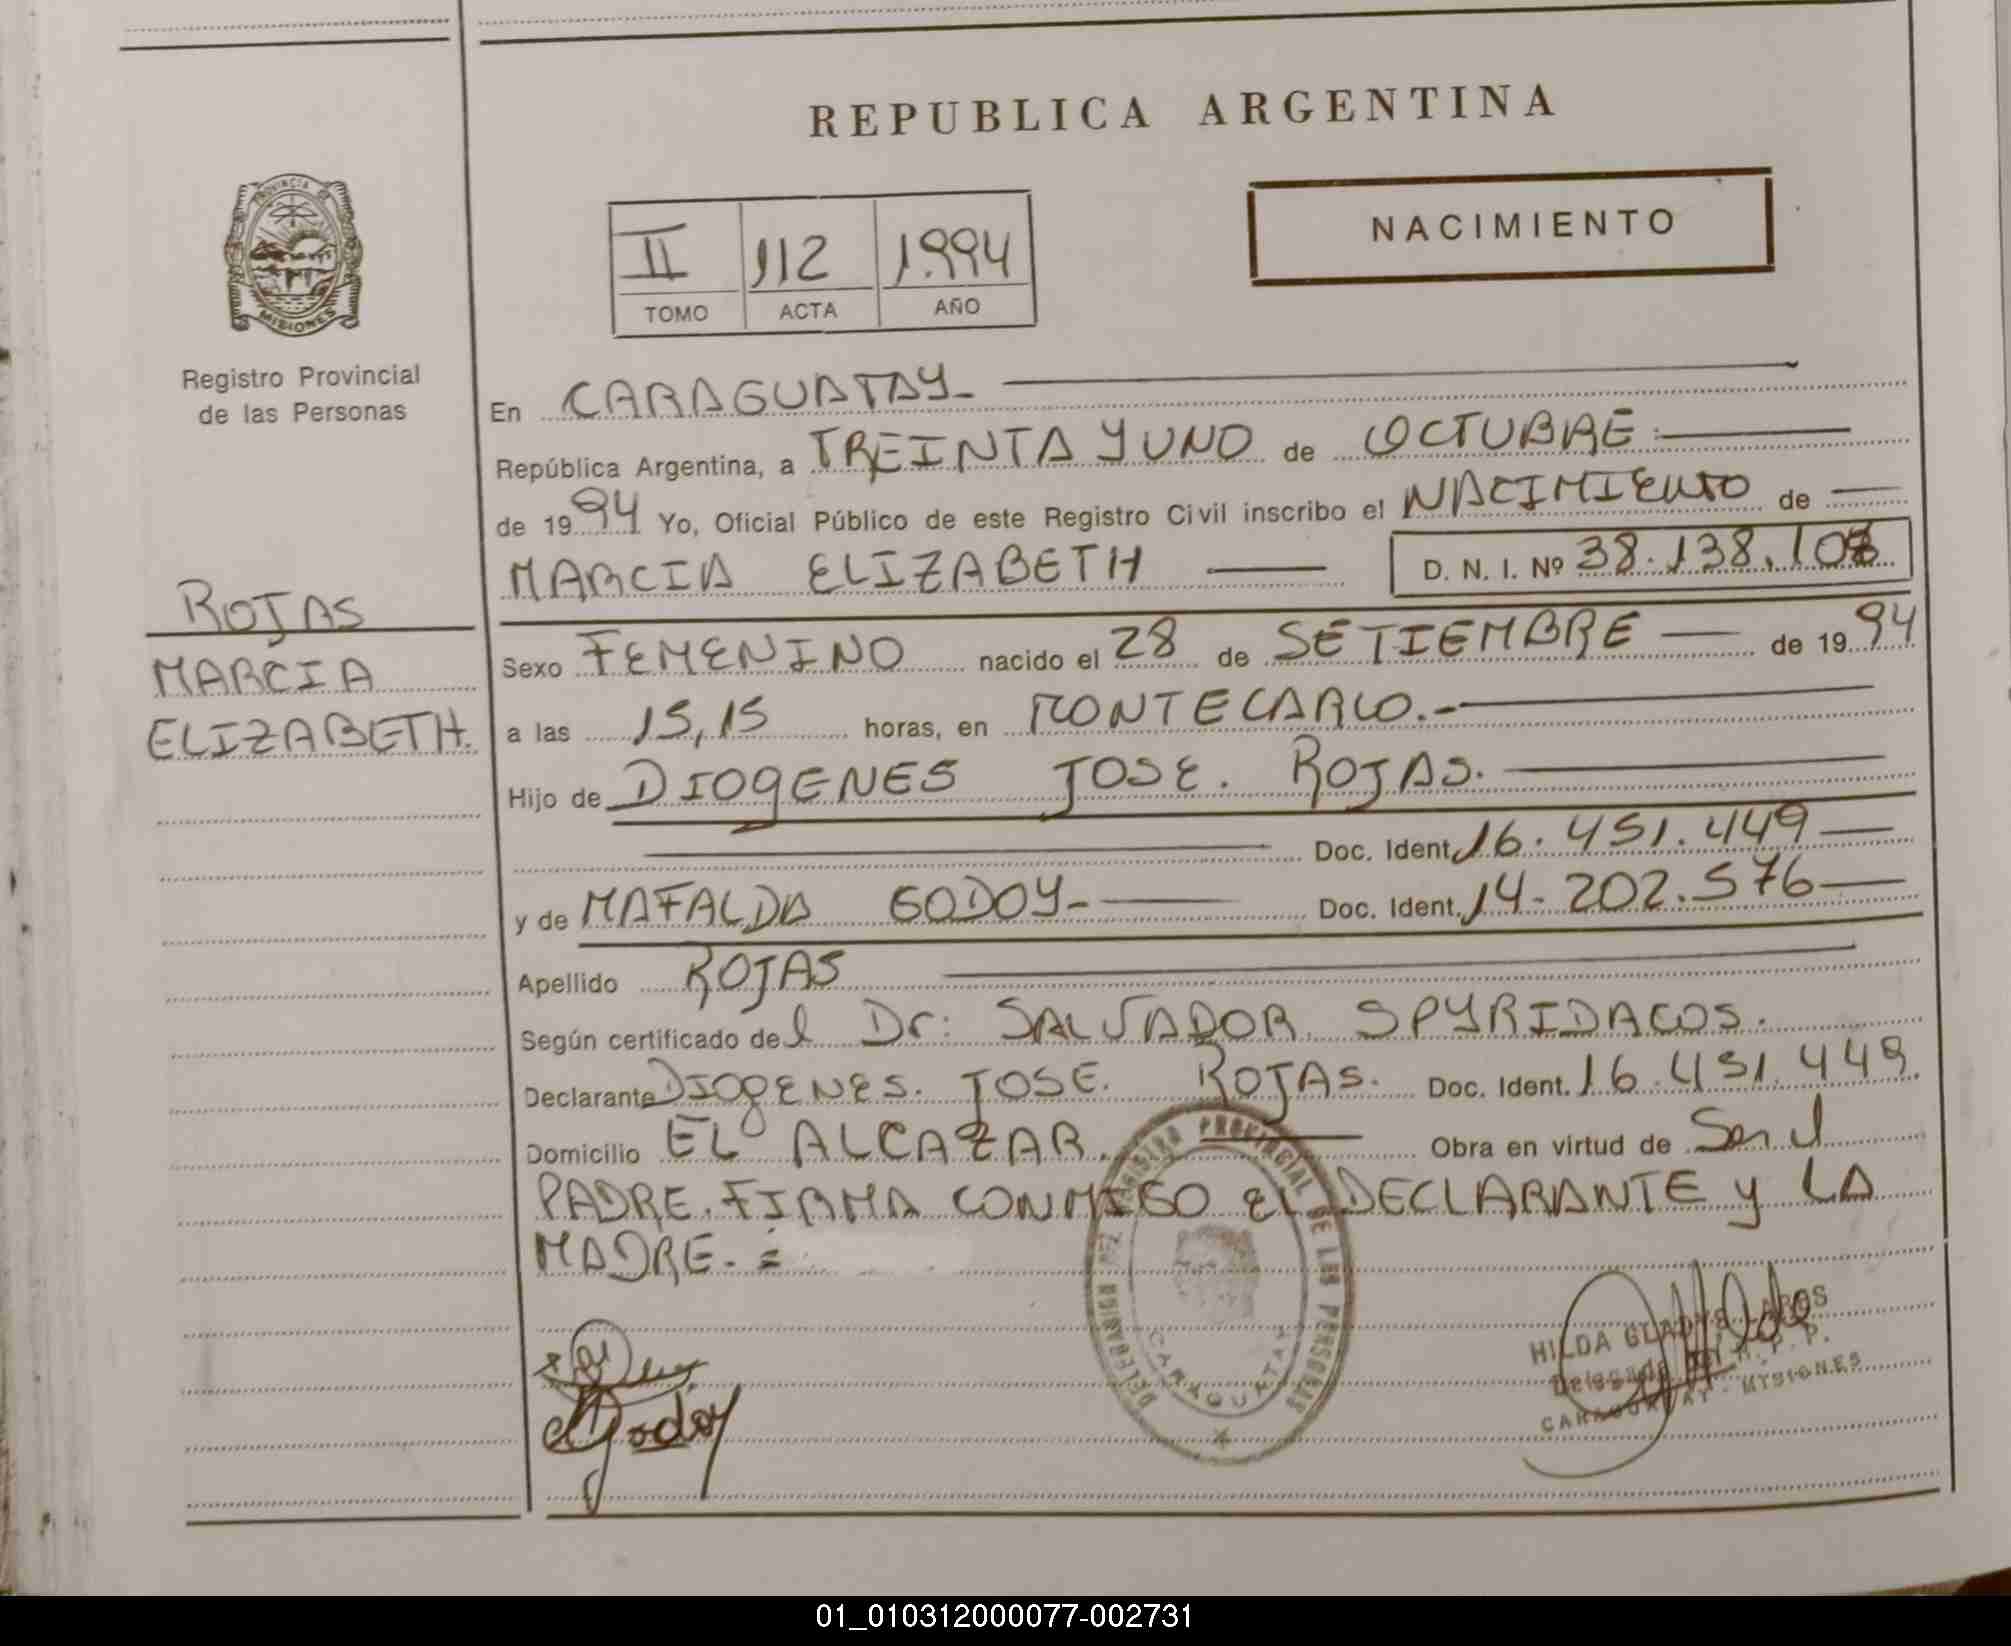 REPUBLICA ARGENTINA
PROVINCIA DE
MISIONES
Registro Provincial
de las Personas
II 112 1.994
TOMO ACTA AÑO
NACIMIENTO
En CARAGUATAY.
República Argentina, a TREINTA Y UNO de OCTUBRE.
de 1994 Yo, Oficial Público de este Registro Civil inscribo el NACIMIENTO de
MARCIA ELIZABETH D. N. I. Nº 38.138.10
ROJAS
MARCIA
ELIZABETH.
Sexo FEMENINO nacido el 28 de SETIEMBRE de 1994
a las 15,15 horas, en MONTECARLO.-
Hijo de DIOGENES JOSE. ROJAS.
Doc. Ident. 16.451.449
y de MAFALDA GODOY- Doc. Ident. 14-202.576
Apellido ROJAS
Según certificado del Dr: SALVADOR. SPYRIDACOS.
Declarante DIOGENES. JOSE. ROJAS. Doc. Ident. 16.451.449.
Domicilio EL ALCAZAR. Obra en virtud de Ser el
PADRE. FIRMA CONMIGO EL DECLARANTE y LA
MADRE.=
REGISTRO PROVINCIAL DE LAS PERSONAS
CARAGUATAY
Godoy
HILDA GLADYS
Delegada
CARAGUATAY - MISIONES
01_010312000077-002731